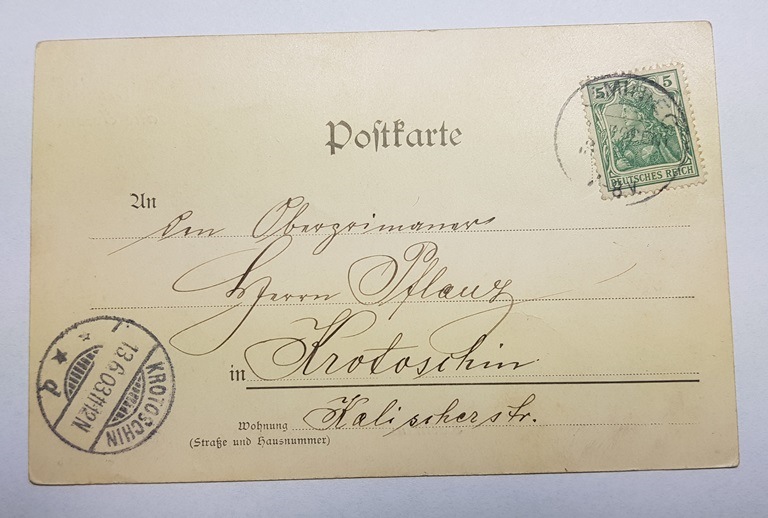 Postkarte
5 5
DEUTSCHES REICH
8V.
An
den Oberprimaner
Herrn Pflanz
in Krotoschin
Wohnung Kalischerstr.
(Straße und Hausnummer)
KROTOSCHIN
13.6.03.11-12N